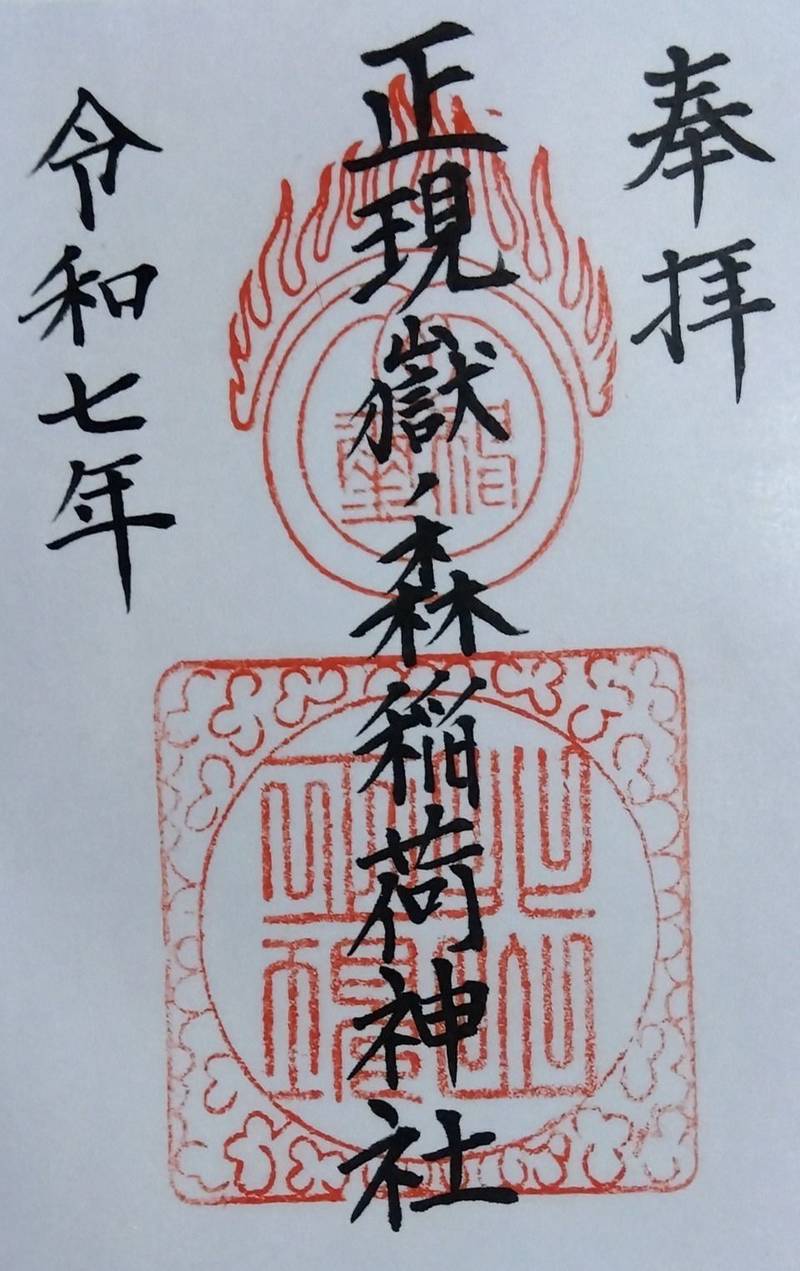 奉拝
正現嶽ノ森稲荷神社
令和七年